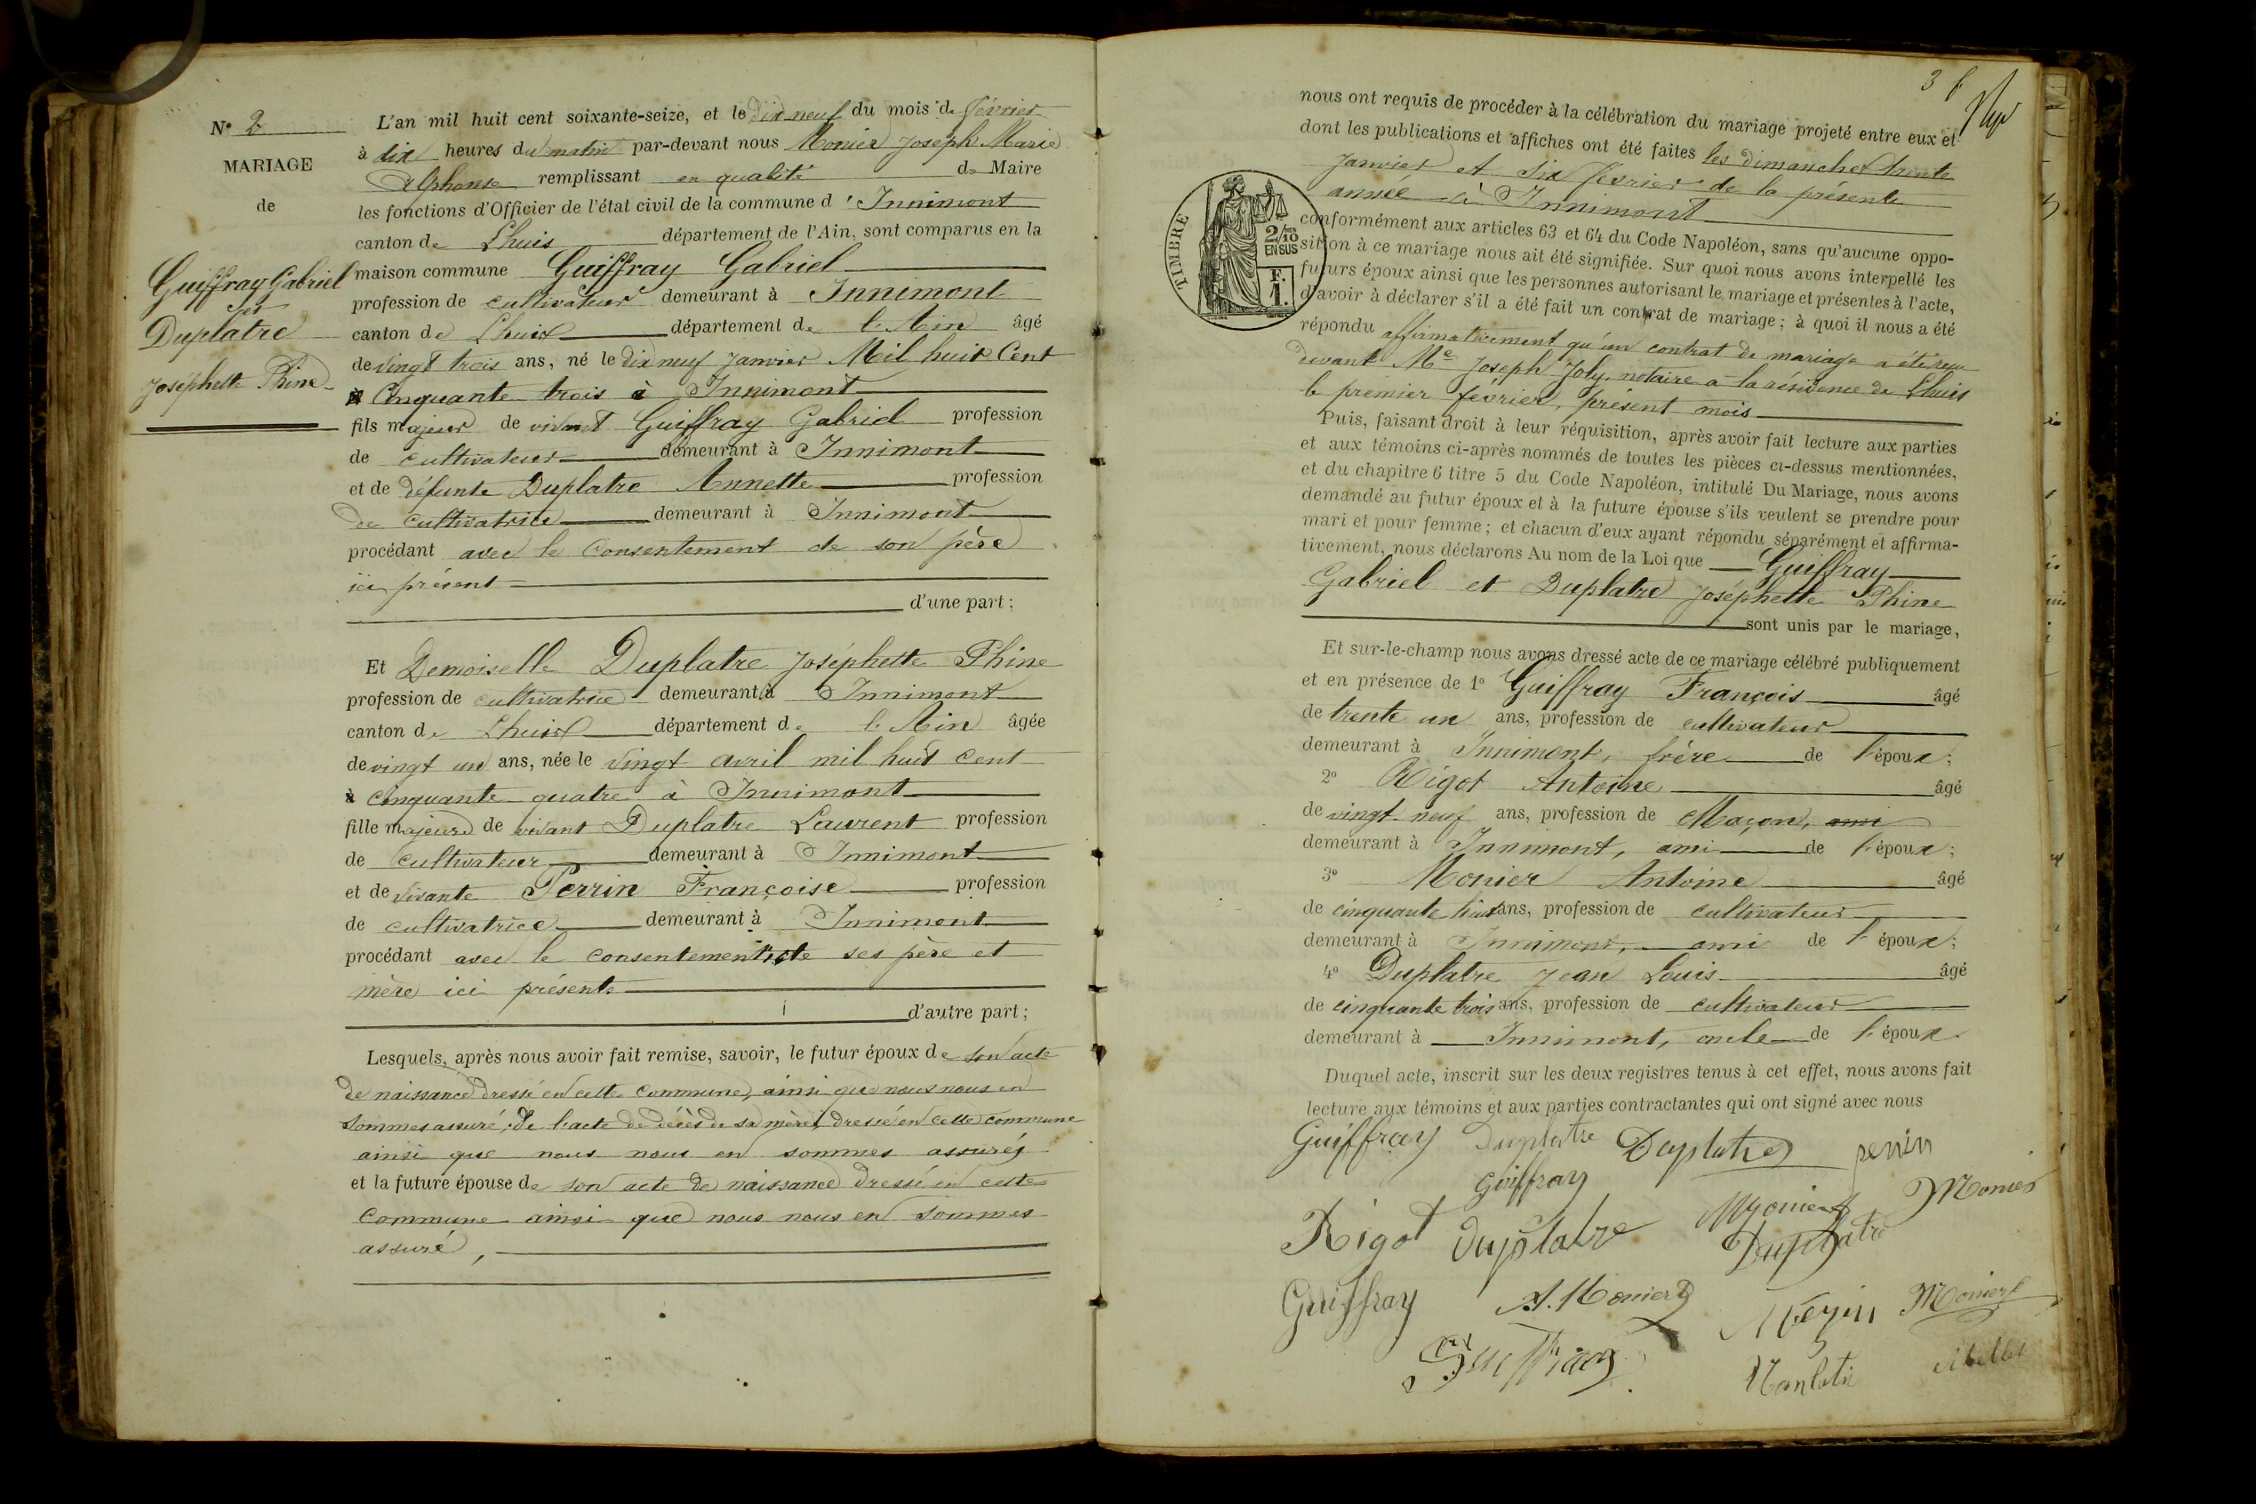 N° 2
MARIAGE
de
Guiffray Gabriel
et
Duplatre
Joséphette Phine
L'an mil huit cent soixante-seize, et le dix neuf du mois de février
à dix heures du matin par-devant nous Monier Joseph Marie
Alphonse remplissant en qualité de Maire
les fonctions d'Officier de l'état civil de la commune d'Innimont
canton de Lhuis département de l'Ain, sont comparus en la
maison commune Guiffray Gabriel
profession de cultivateur demeurant à Innimont
canton de Lhuis département de l'Ain âgé
de vingt trois ans, né le dix neuf janvier Mil huit Cent
Cinquante trois à Innimont
fils majeur de vivant Guiffray Gabriel profession
de cultivateur demeurant à Innimont
et de défunte Duplatre Annette profession
de cultivatrice demeurant à Innimont
procédant avec le Consentement de son père
ici présent
d'une part ;
Et Demoiselle Duplatre Joséphette Phine
profession de cultivatrice demeurant à Innimont
canton de Lhuis département de l'Ain âgée
de vingt un ans, née le vingt avril mil huit cent
cinquante quatre à Innimont
fille majeure de vivant Duplatre Laurent profession
de cultivateur demeurant à Innimont
et de vivante Perrin Françoise profession
de cultivatrice demeurant à Innimont
procédant avec le consentement de ses père et
mère ici présents
d'autre part ;
Lesquels, après nous avoir fait remise, savoir, le futur époux de son acte
de naissance dressé en cette commune, ainsi que nous nous en
sommes assuré ; de l'acte de décès de sa mère, dressé en cette commune
ainsi que nous nous en sommes assurés
et la future épouse de son acte de naissance dressé en cette
commune ainsi que nous nous en sommes
assuré,
3
nous ont requis de procéder à la célébration du mariage projeté entre eux et
dont les publications et affiches ont été faites les dimanches trente
janvier et six février de la présente
année à Innimont
TIMBRE
2/10
EN SUS
F.
1.
conformément aux articles 63 et 64 du Code Napoléon, sans qu'aucune oppo-
sition à ce mariage nous ait été signifiée. Sur quoi nous avons interpellé les
futurs époux ainsi que les personnes autorisant le mariage et présentes à l'acte,
d'avoir à déclarer s'il a été fait un contrat de mariage ; à quoi il nous a été
répondu affirmativement qu'un contrat de mariage a été reçu
devant Me Joseph Joly, notaire à la résidence de Lhuis
le premier février, présent mois
Puis, faisant droit à leur réquisition, après avoir fait lecture aux parties
et aux témoins ci-après nommés de toutes les pièces ci-dessus mentionnées,
et du chapitre 6 titre 5 du Code Napoléon, intitulé Du Mariage, nous avons
demandé au futur époux et à la future épouse s'ils veulent se prendre pour
mari et pour femme ; et chacun d'eux ayant répondu séparément et affirma-
tivement, nous déclarons Au nom de la Loi que Guiffray
Gabriel et Duplatre Joséphette Phine
sont unis par le mariage,
Et sur-le-champ nous avons dressé acte de ce mariage célébré publiquement
et en présence de 1° Guiffray François âgé
de trente un ans, profession de cultivateur
demeurant à Innimont, frère de l'époux ;
2° Rigot Antoine âgé
de vingt neuf ans, profession de Maçon, ami
demeurant à Innimont, ami de l'époux ;
3° Monier Antoine âgé
de cinquante huit ans, profession de cultivateur
demeurant à Innimont, ami de l'époux ;
4° Duplatre Jean Louis âgé
de cinquante trois ans, profession de cultivateur
demeurant à Innimont, oncle de l'époux
Duquel acte, inscrit sur les deux registres tenus à cet effet, nous avons fait
lecture aux témoins et aux parties contractantes qui ont signé avec nous
Guiffray Duplatre Duplatre perrin
Guiffray
Rigot Duplatre Monier Monier
Duplatre
Guiffray A. Monier Monier
Guiffray